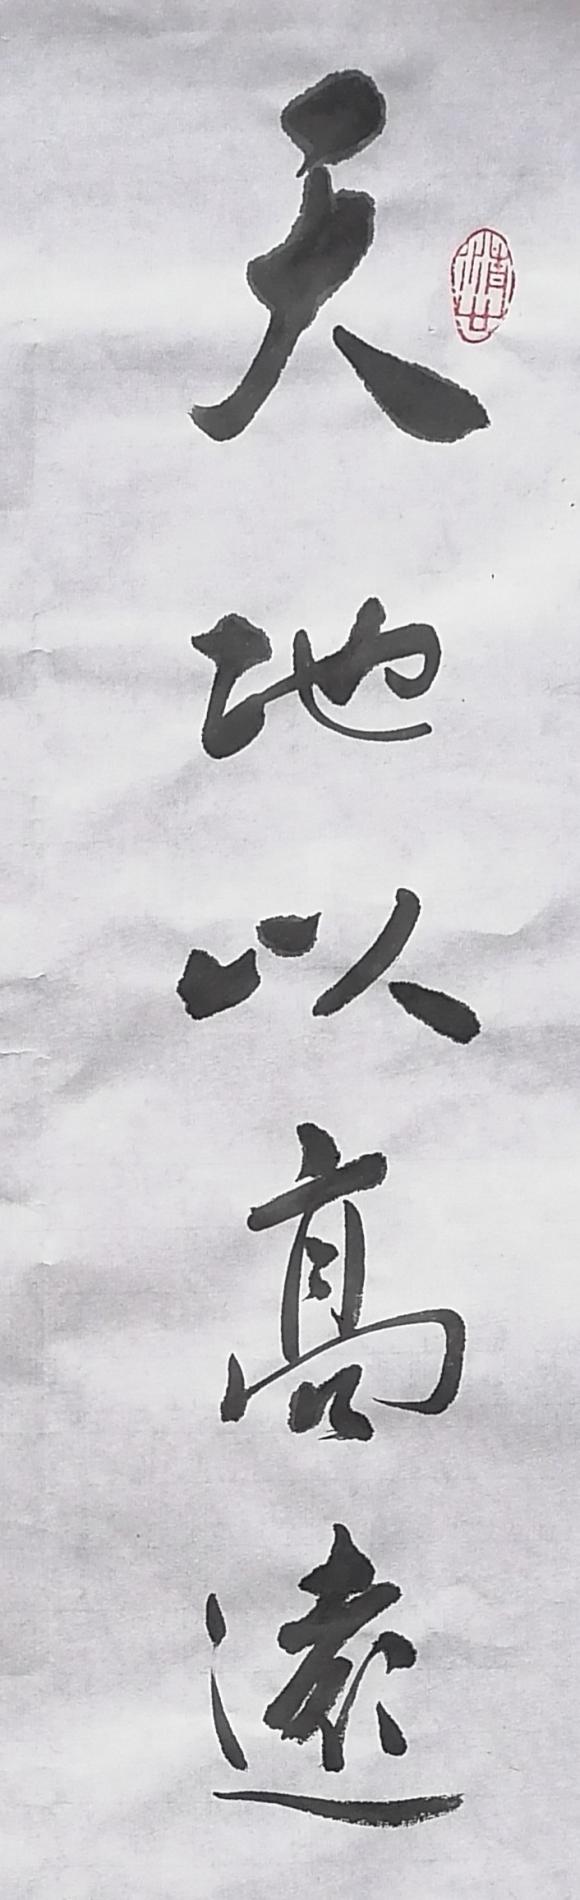 天地以高遠